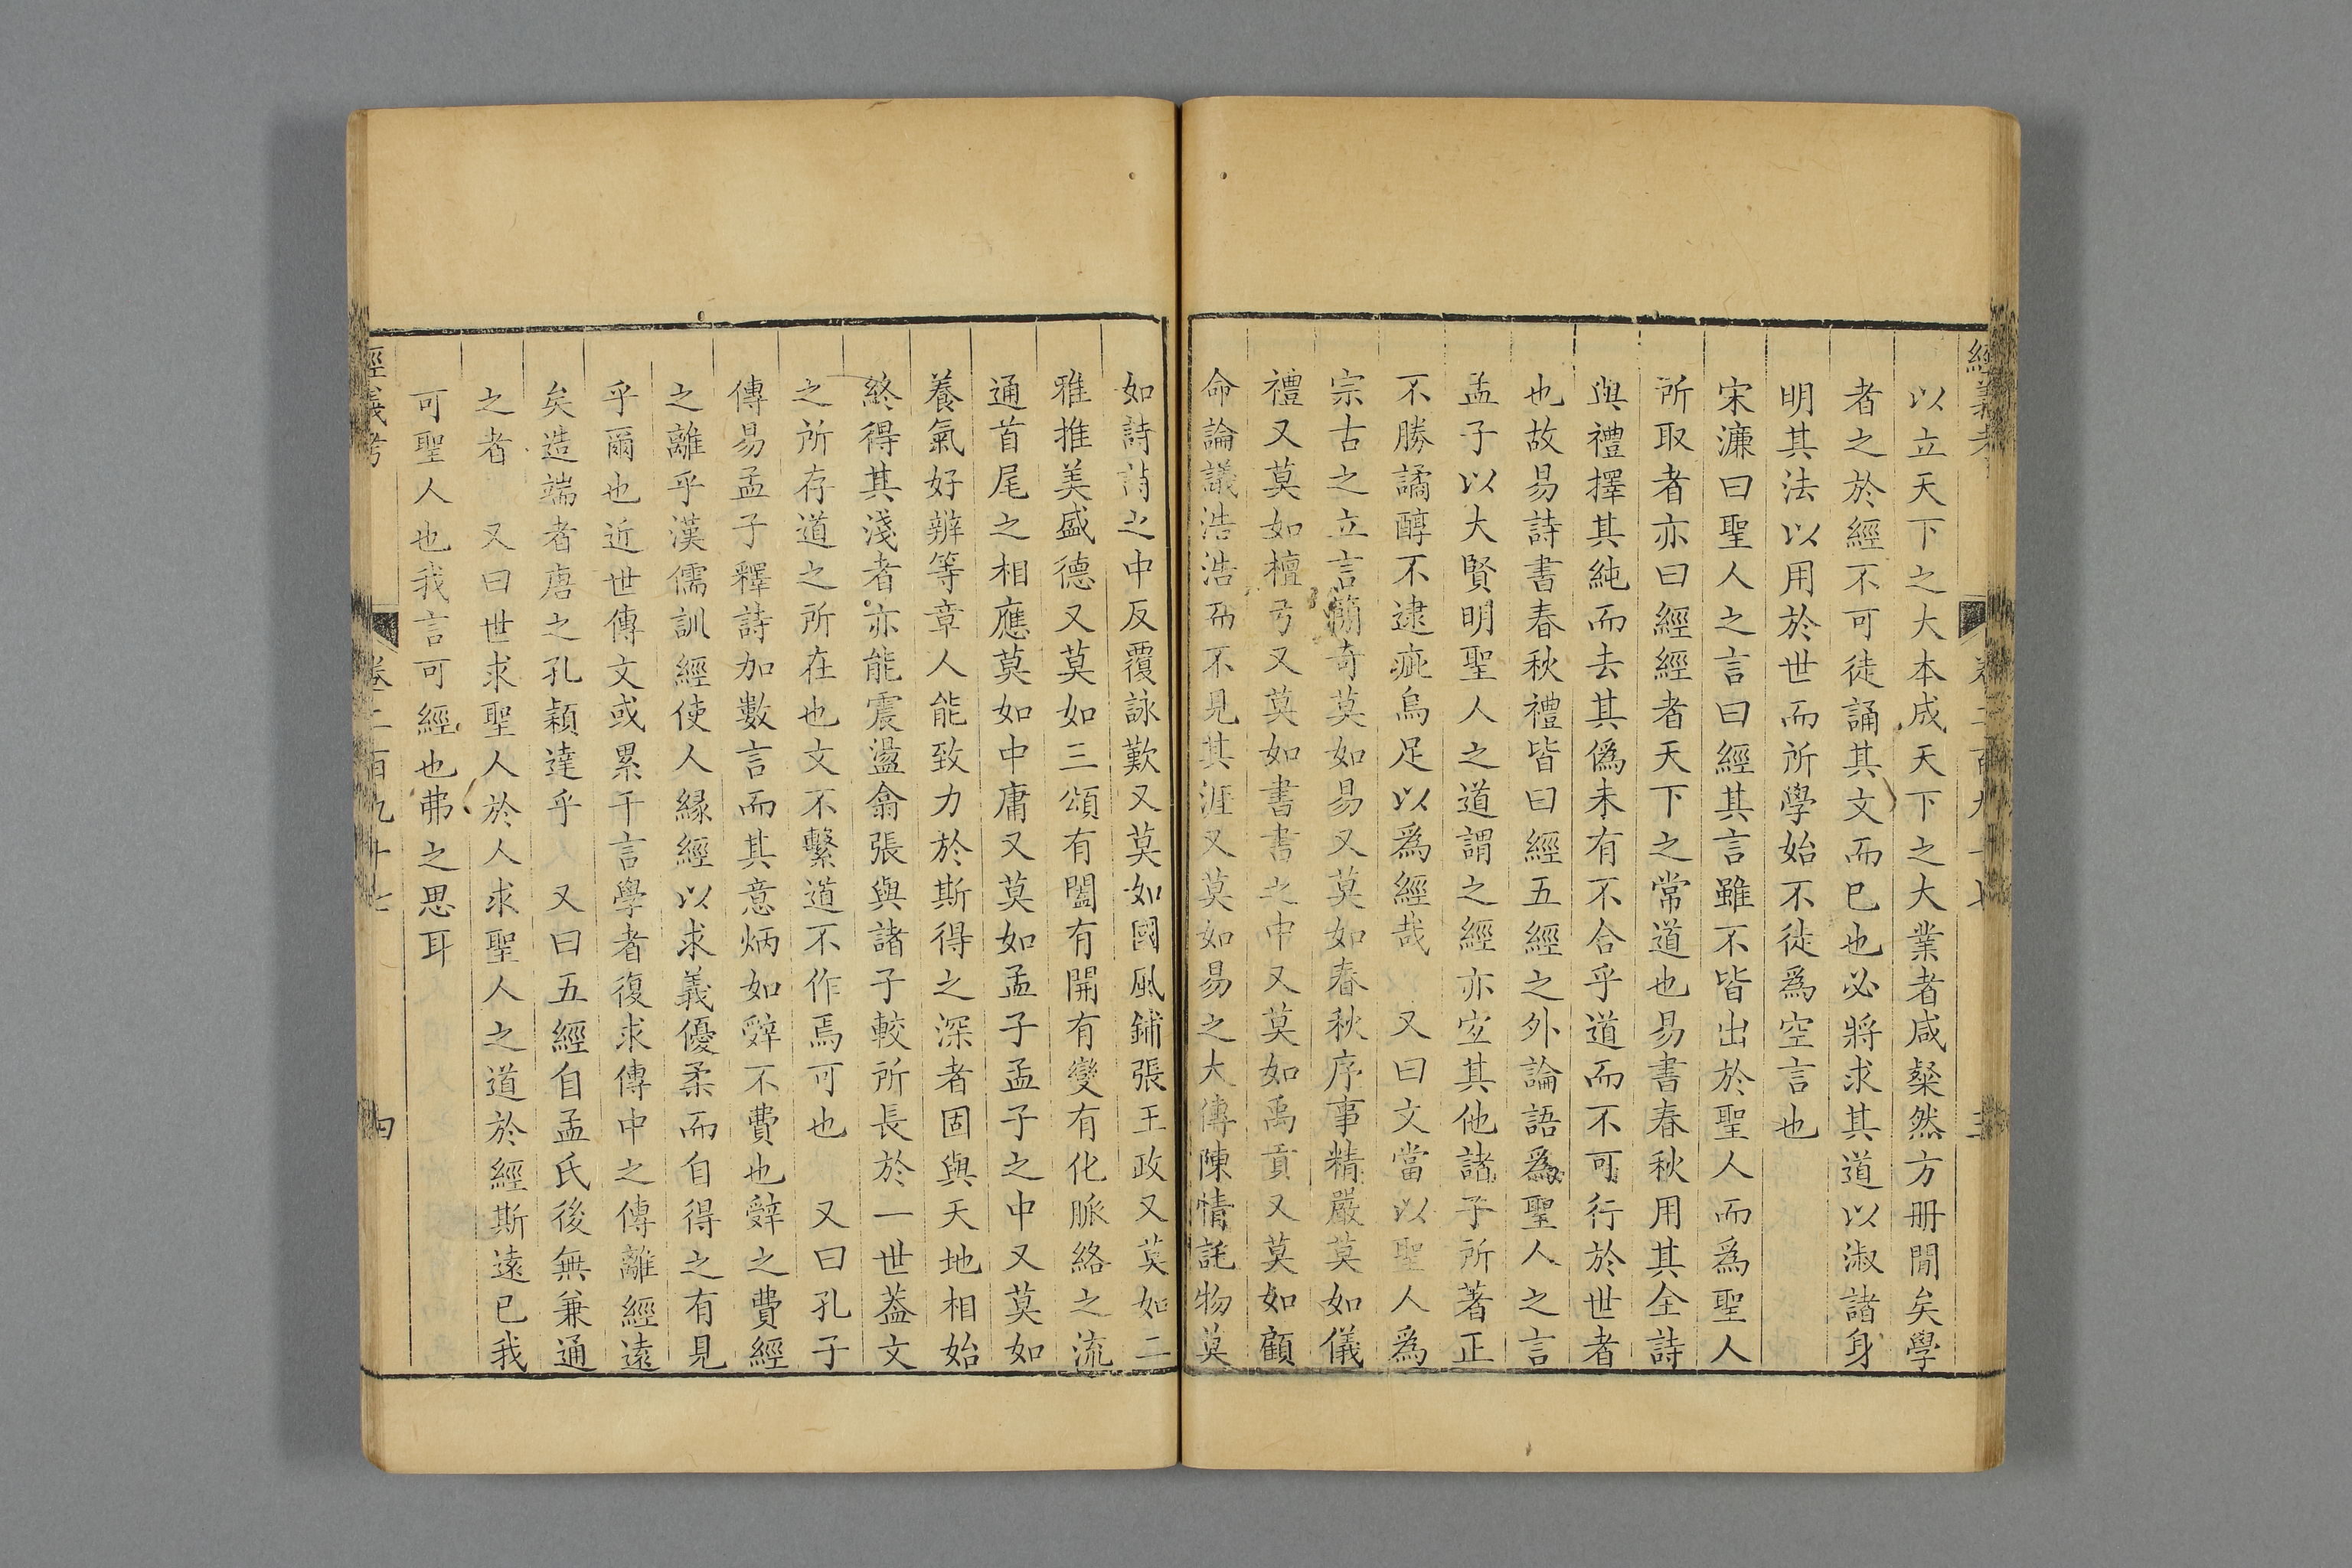 以立天下之大本成天下之大業者咸粲然方冊閒矣學
者之於經不可徒誦其文而已也必將求其道以淑諸身
明其法以用於世而所學始不徒爲空言也
宋濂曰聖人之言曰經其言雖不皆出於聖人而爲聖人
所取者亦曰經經者天下之常道也易書春秋用其全詩
與禮擇其純而去其僞未有不合乎道而不可行於世者
也故易詩書春秋禮皆曰經五經之外論語爲聖人之言
孟子以大賢明聖人之道謂之經亦宜其他諸子所著正
不勝譎醇不逮疵烏足以爲經哉　又曰文當以聖人爲
宗古之立言簡奇莫如易又莫如春秋序事精嚴莫如儀
禮又莫如檀弓又莫如書書之中又莫如禹貢又莫如顧
命論議浩浩而不見其涯又莫如易之大傳陳情託物莫
如詩詩之中反覆詠歎又莫如國風鋪張王政又莫如二
雅推美盛德又莫如三頌有闔有開有變有化脈絡之流
通首尾之相應莫如中庸又莫如孟子孟子之中又莫如
養氣好辨等章人能致力於斯得之深者固與天地相始
終得其淺者亦能震盪翕張與諸子較所長於一世蓋文
之所存道之所在也文不繫道不作焉可也　又曰孔子
傳易孟子釋詩加數言而其意炳如辭不費也辭之費經
之離乎漢儒訓經使人緣經以求義優柔而自得之有見
乎爾也近世傳文或累千言學者復求傳中之傳離經遠
矣造端者唐之孔穎達乎　又曰五經自孟氏後無兼通
之者　又曰世求聖人於人求聖人之道於經斯遠已我
可聖人也我言可經也弗之思耳
經義考　卷二百九十七　四